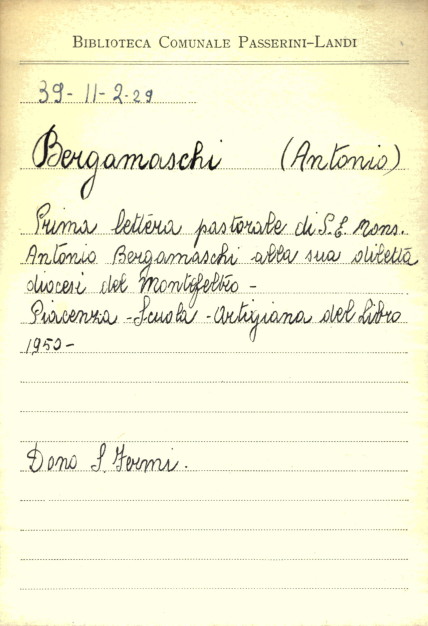 BIBLIOTECA COMUNALE PASSERINI-LANDI
39-11-2-29
Bergamaschi (Antonio)
Prima lettera pastorale di S. E. Mons.
Antonio Bergamaschi alla sua diletta
diocesi del Montefeltro -
Piacenza - Scuola - Artigiana del Libro
1950 -
Dono S. Fermi.